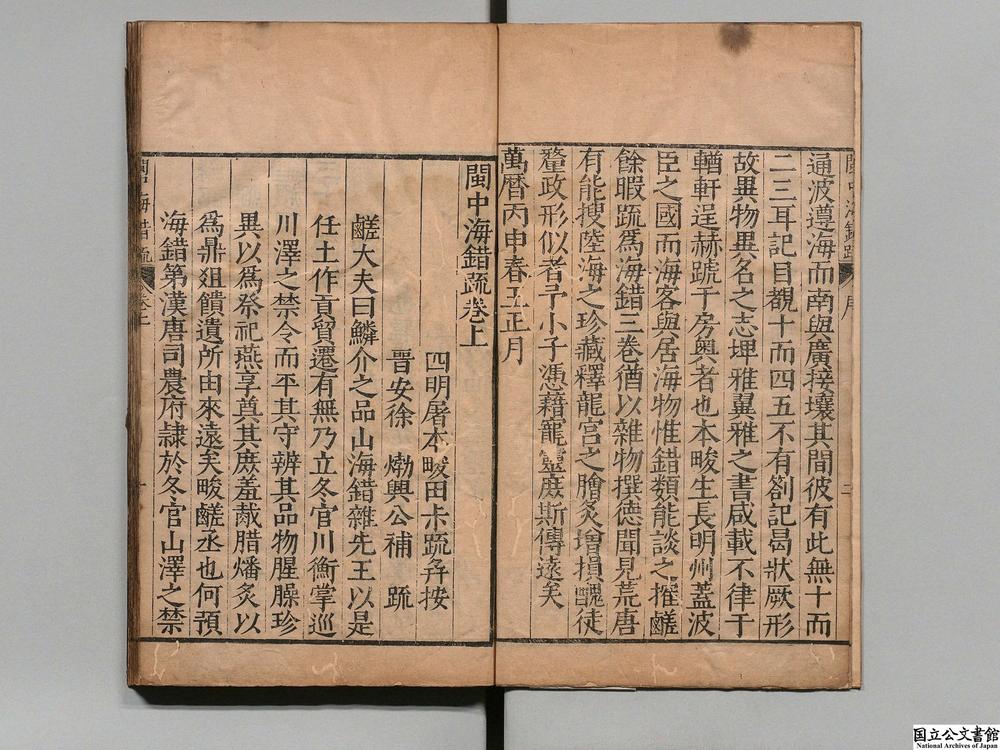 閩中海錯疏
序
二
通波遵海而南與廣接壤其間彼有此無十而
二三耳記目覩十而四五不有劄記曷狀厥形
故異物異名之志埤雅翼雅之書咸載不律于
輶軒逞赫號于房奧者也本畯生長明州蓋波
臣之國而海客與居海物惟錯類能談之搉鹺
餘暇疏爲海錯三卷猶以雜物撰德聞見荒唐
有能搜陸海之珍藏釋龍宮之膾炙增損醜徒
釐政形似者予小子憑藉寵靈庶斯傳遠矣
萬曆丙申春王正月
閩中海錯疏卷上
四明屠本畯田卡疏幷按
晋安徐𤊹興公補疏
鹺大夫曰鱗介之品山海錯雜先王以是
任土作貢貿遷有無乃立冬官川衡掌巡
川澤之禁令而平其守辨其品物腥臊珍
異以爲祭祀燕享奠其庶羞胾腊燔炙以
爲鼎俎饋遺所由來遠矣畯鹺丞也何預
海錯第漢唐司農府隷於冬官山澤之禁
閩中海錯疏
卷上
一
国立公文書館
National Archives of Japan